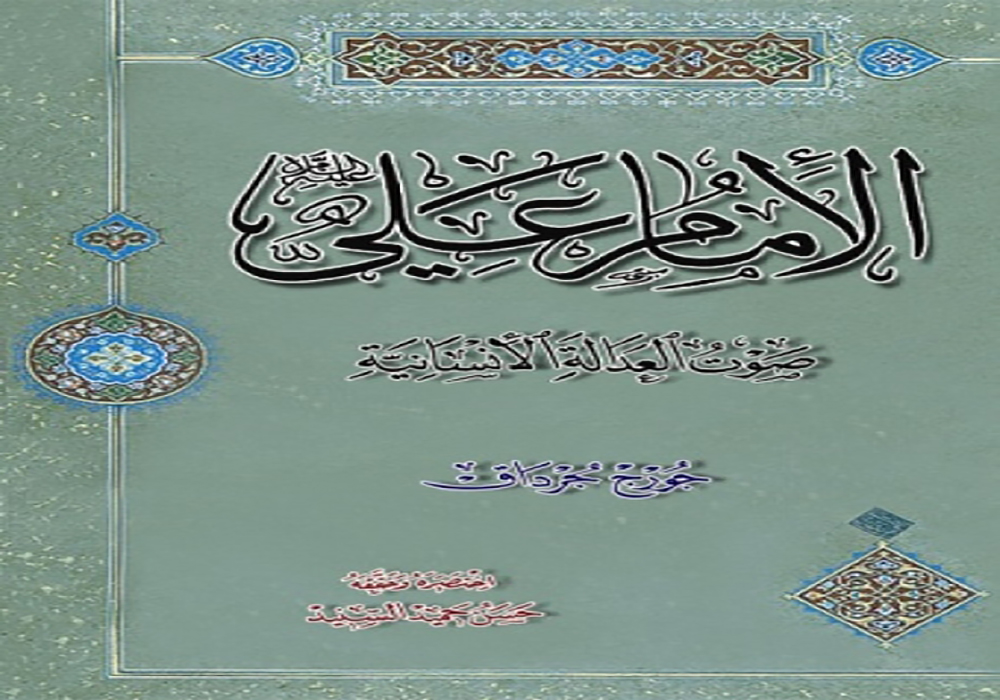 الإمام علي عليه السلام
صوت العدالة الأنسانية
جورج جرداق
اختصره وحققه
حسن حميد السنيد